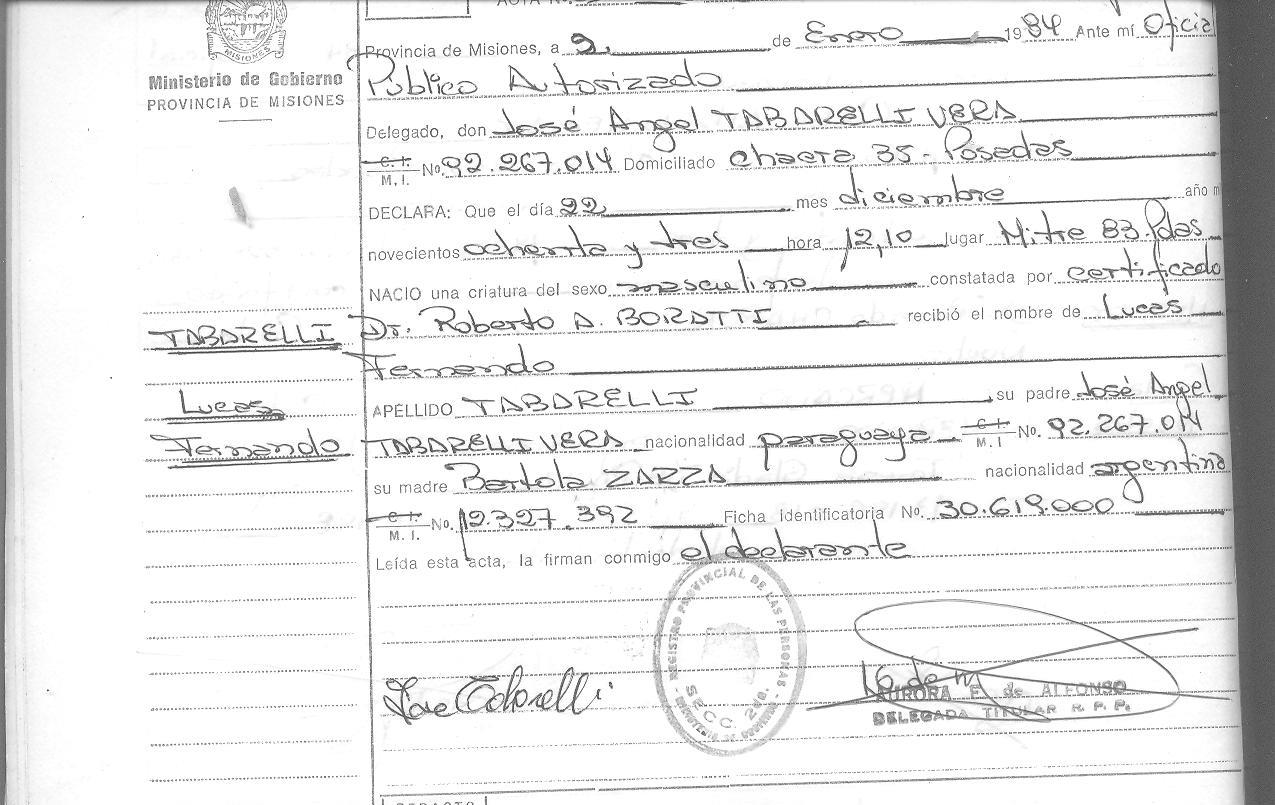 ACTA No.
MISIONES
Ministerio de Gobierno
PROVINCIA DE MISIONES
Provincia de Misiones, a 2. de Enero 1984 Ante mí Oficial
Público Autorizado
Delegado, don José Angel TABARELLI VERA
C. I. M. I. No. 92.267.014 Domiciliado Chacra 35 - Posadas
DECLARA: Que el día 22 mes diciembre año m
novecientos ochenta y tres hora 12,10 lugar Mitre 83. Pdas
NACIO una criatura del sexo masculino constatada por certificado
Dr. Roberto A. BORATTI recibió el nombre de Lucas
Fernando
APELLIDO TABARELLI su padre José Angel
TABARELLI VERA nacionalidad paraguaya C. I. M. I No. 92.267.014
su madre ZARZA nacionalidad argentina
C. I. M. I. No. 12.327.392 Ficha identificatoria No. 30.619.000
Leída esta acta, la firman conmigo el declarante
TABARELLI
Lucas
Fernando
REGISTRO PROVINCIAL DE LAS PERSONAS
SECC. 2da.
MINISTERIO DE GOBIERNO
AURORA E. de ALFONSO
DELEGADA TITULAR R. P. P.